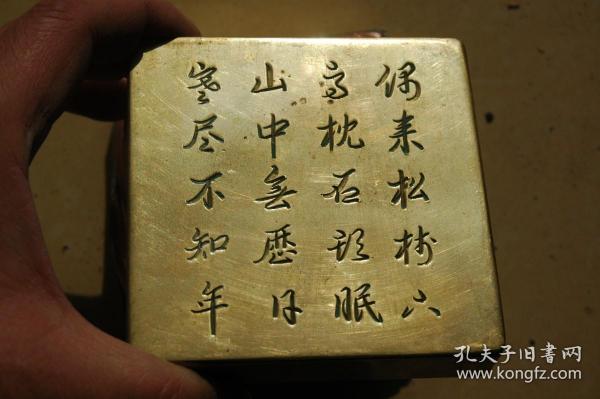 偶来松树下
高枕石头眠
山中無歷日
寒尽不知年
孔夫子旧書网
www.kongfz.com